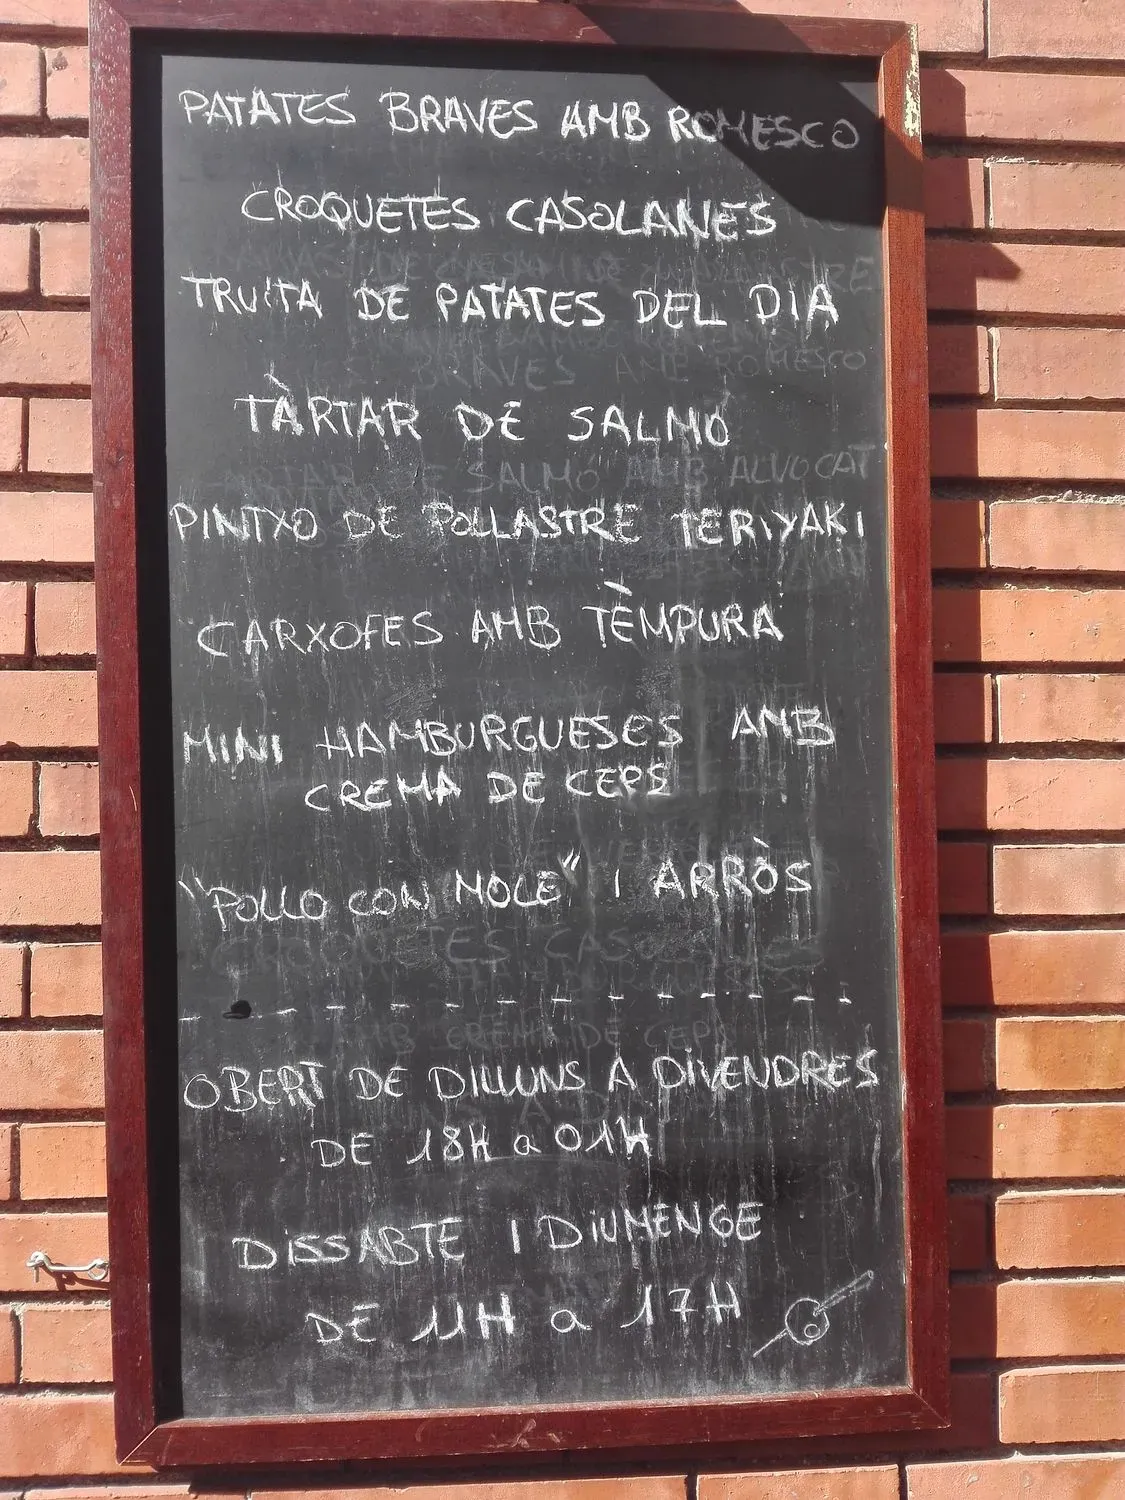 PATATES BRAVES AMB ROMESCO
CROQUETES CASOLANES
TRUITA DE PATATES DEL DIA
TÀRTAR DE SALMÓ
PINTXO DE POLLASTRE TERIYAKI
CARXOFES AMB TÈMPURA
MINI HAMBURGUESES AMB
CREMA DE CEPS
"POLLO CON MOLE" I ARRÒS
OBERT DE DILLUNS A DIVENDRES
DE 18H a 01H
DISSABTE I DIUMENGE
DE 11H a 17H